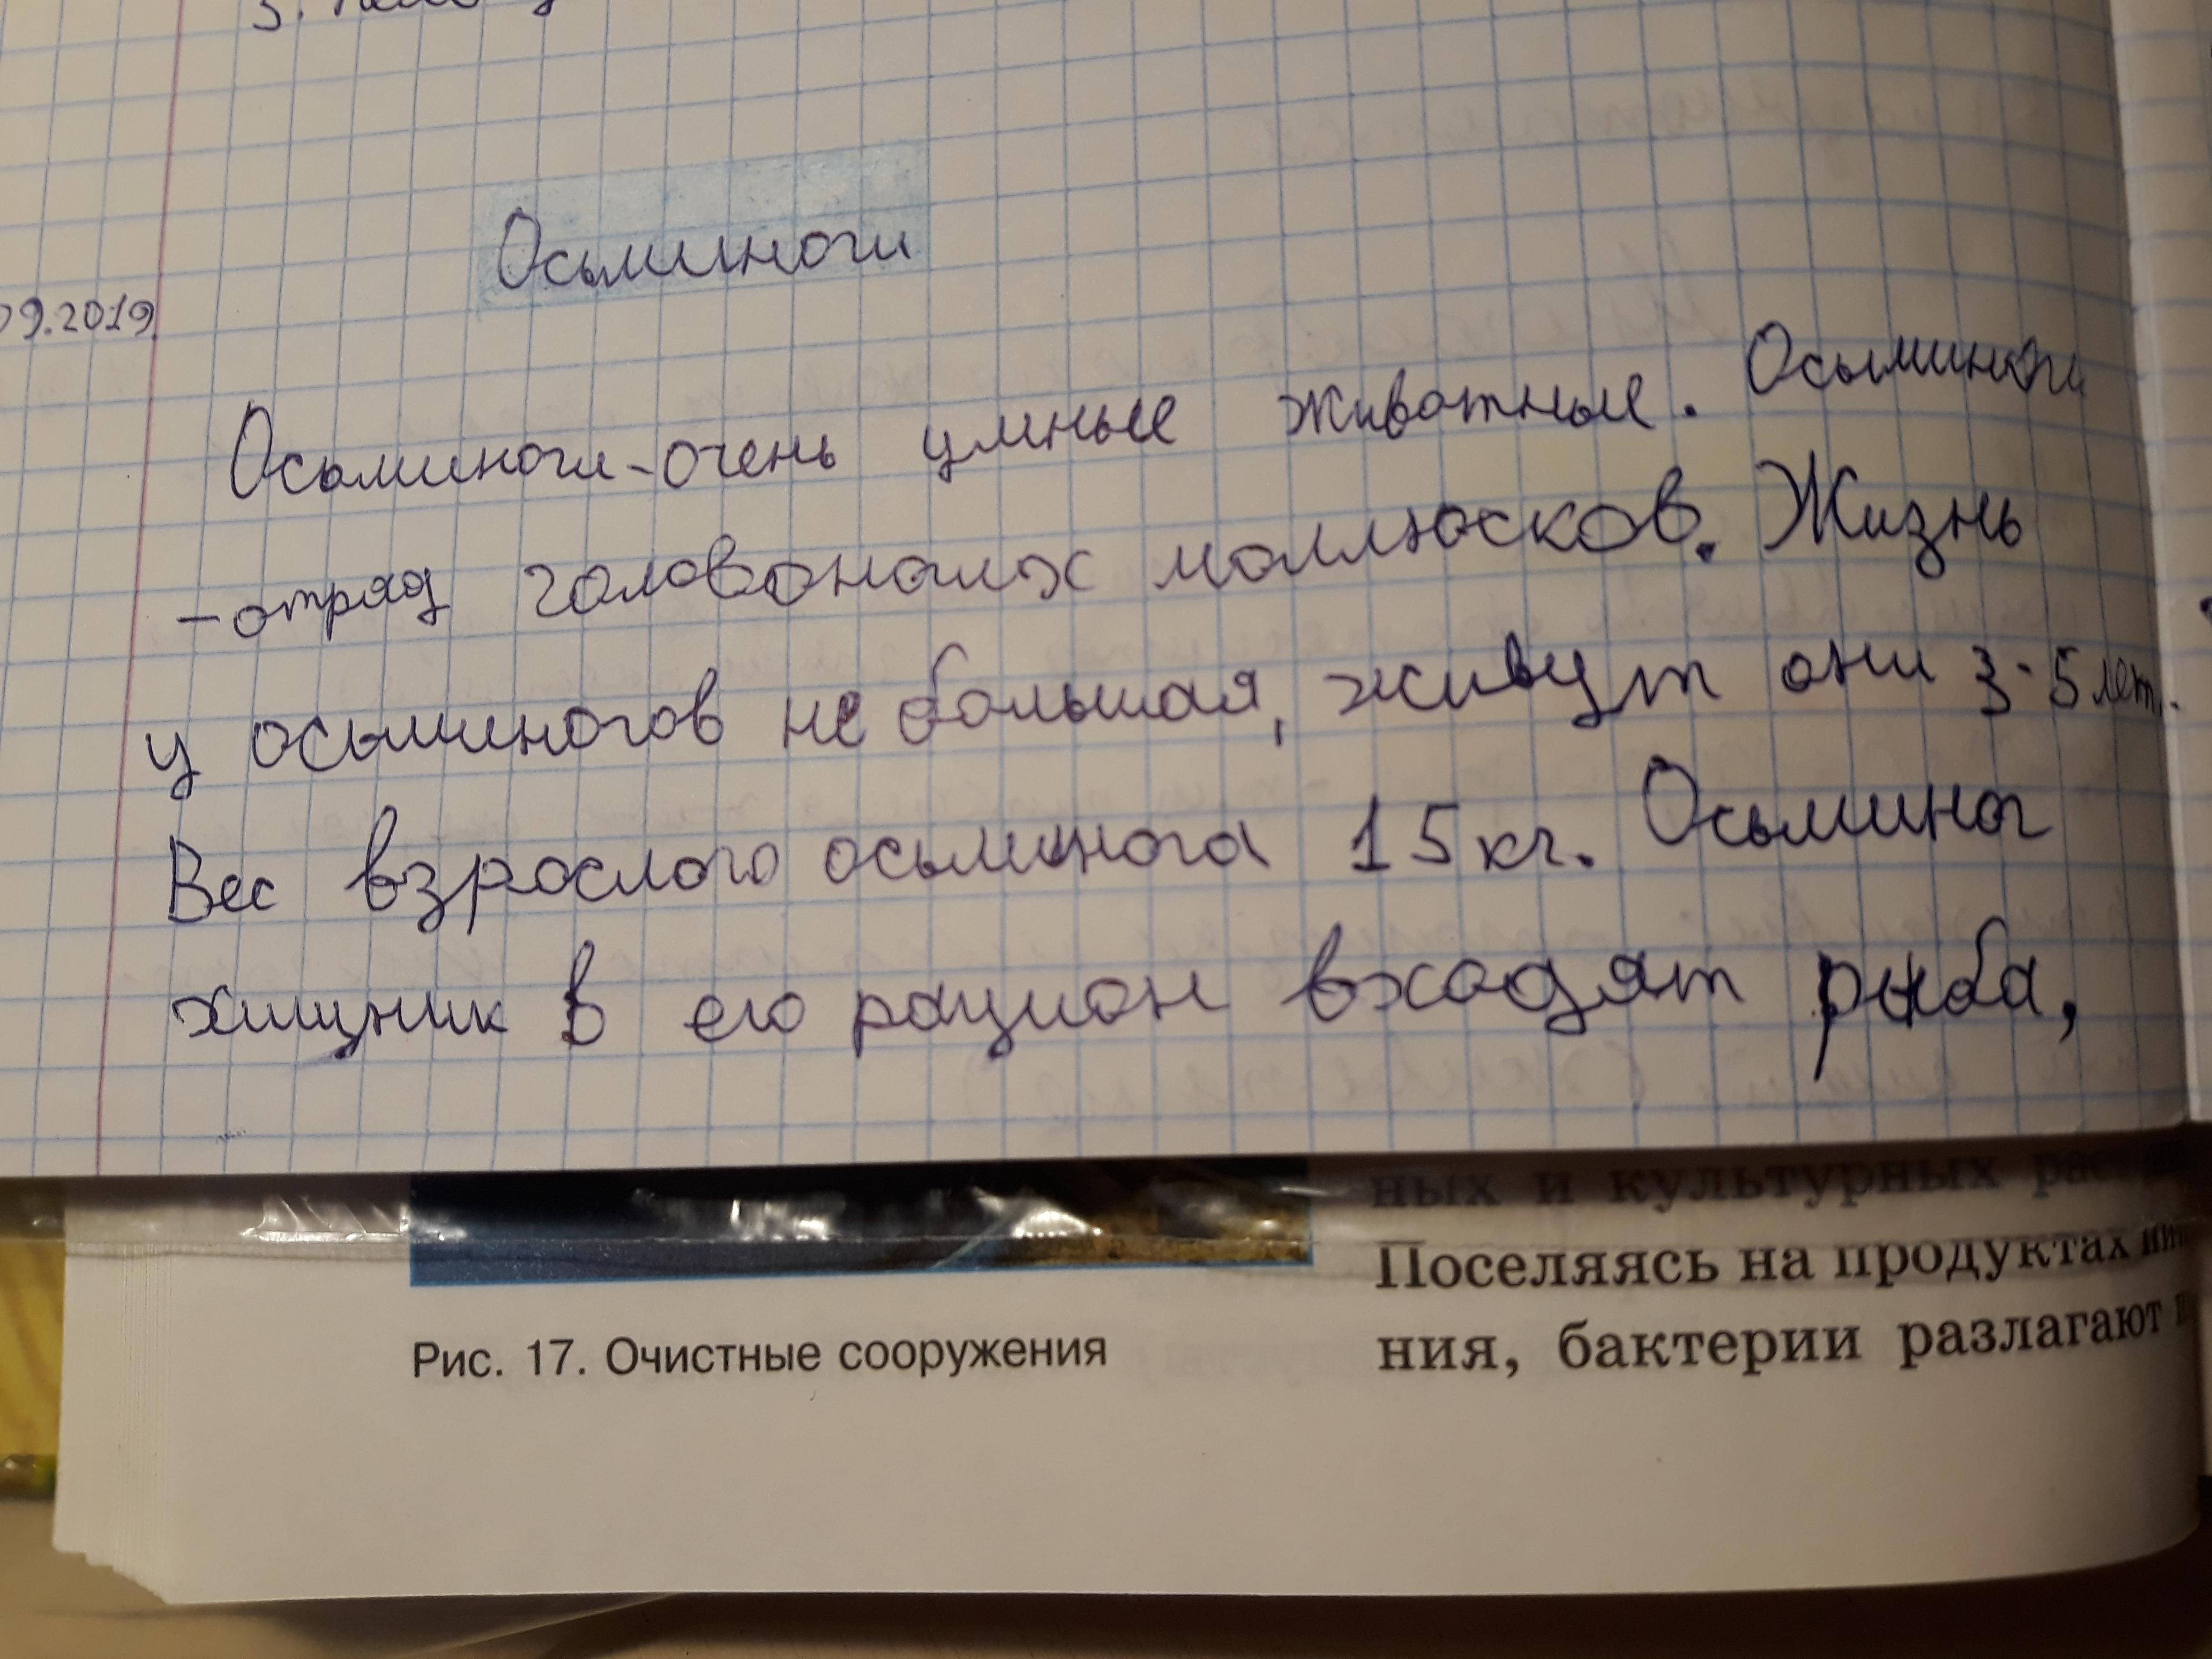 Осьминоги
09.2019
Осьминоги-очень умные животные. Осьминоги
-отряд головоногих моллюсков. Жизнь
у осьминогов не большая, живут они 3-5 лет.
Вес взрослого осьминога 15 кг. Осьминог
хищник в его рацион входят рыба,
ных и культурных
Поселяясь на продуктах
Рис. 17. Очистные сооружения
ния, бактерии разлагают